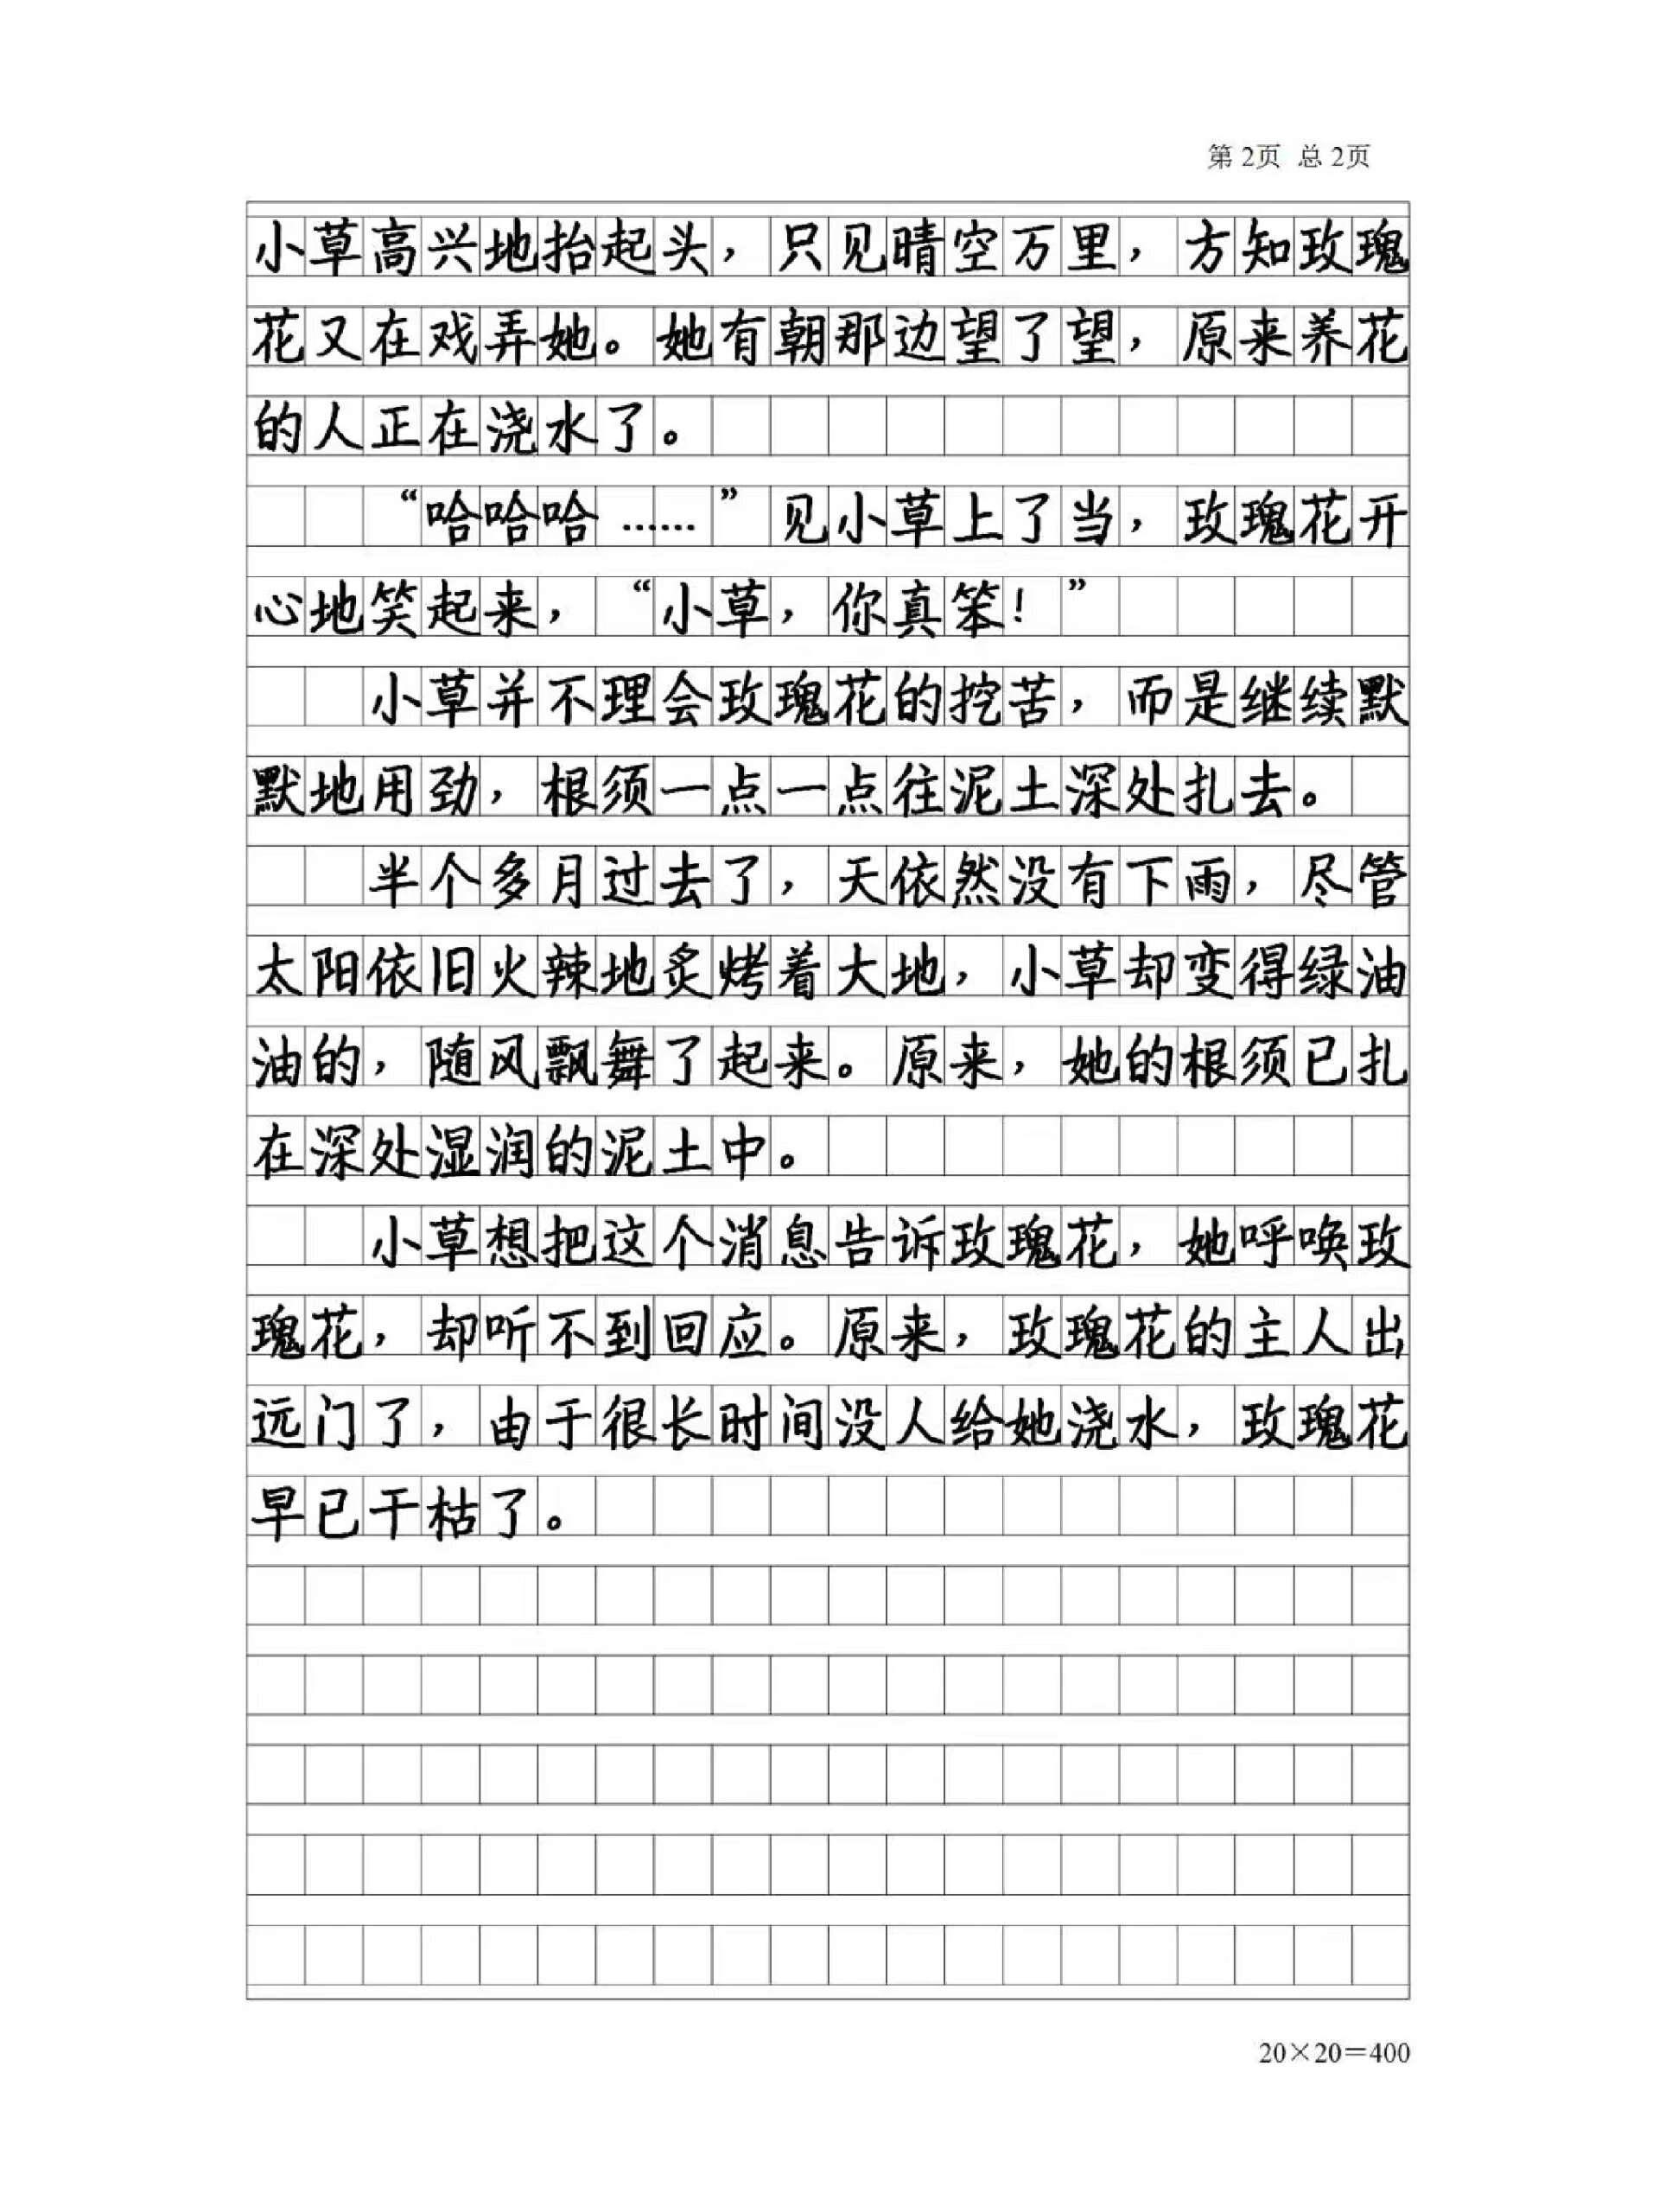 第2页 总2页
小草高兴地抬起头，只见晴空万里，方知玫瑰
花又在戏弄她。她有朝那边望了望，原来养花
的人正在浇水了。
“哈哈哈……”见小草上了当，玫瑰花开
心地笑起来，“小草，你真笨！”
小草并不理会玫瑰花的挖苦，而是继续默
默地用劲，根须一点一点往泥土深处扎去。
半个多月过去了，天依然没有下雨，尽管
太阳依旧火辣地炙烤着大地，小草却变得绿油
油的，随风飘舞了起来。原来，她的根须已扎
在深处湿润的泥土中。
小草想把这个消息告诉玫瑰花，她呼唤玫
瑰花，却听不到回应。原来，玫瑰花的主人出
远门了，由于很长时间没人给她浇水，玫瑰花
早已干枯了。
20×20＝400